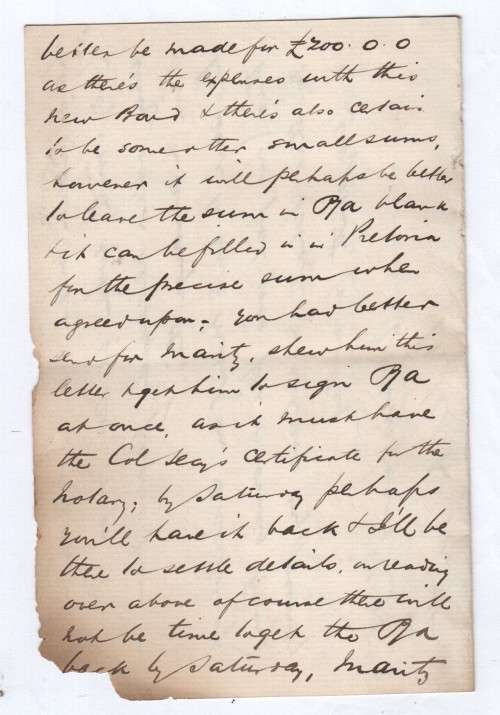 better be made for £200.0.0
as there's the expenses with this
new Bond & there's also certain
to be some other small sums,
however it will perhaps be better
to leave the sum in PA blank
& it can be filled in in Pretoria
for the precise sum when
agreed upon; you had better
send for Maritz, shew him this
letter & get him to sign PA
at once, as it must have
the Col Secy's certificate for the
Notary; by Saturday perhaps
you'll have it back & I'll be
there to settle details, on reading
over above of course there will
not be time to get the PA
back by Saturday, Maritz